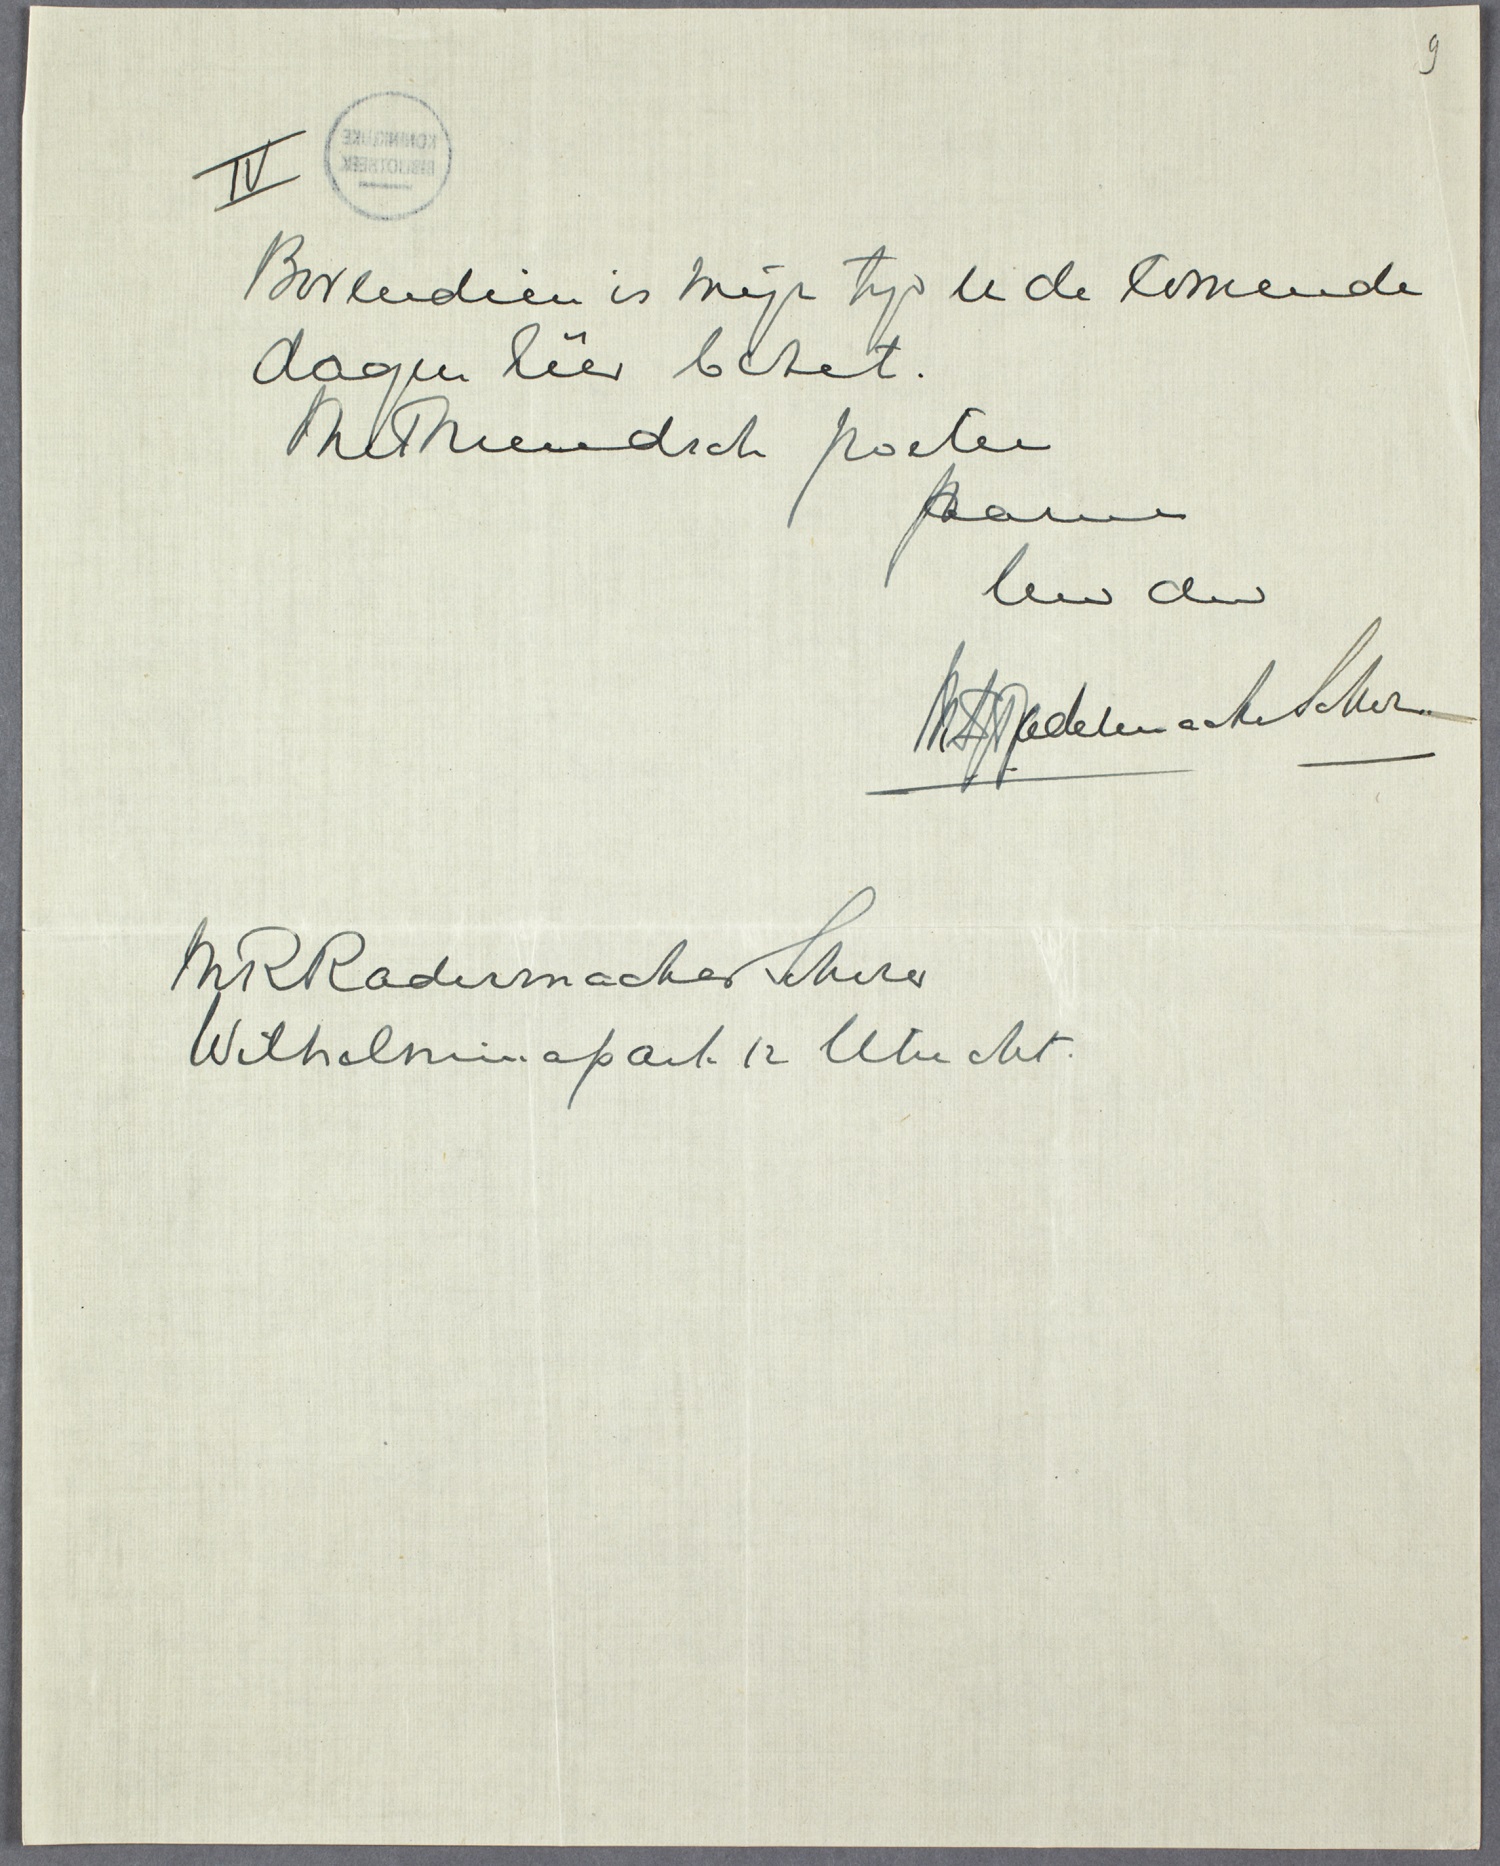 9
IV
KONINKLIJKE
BIBLIOTHEEK
Bovendien is mijn tijd in de komende
dagen zéér bezet.
Met vriendsch groeten
gaarne
Uw dw
MRRadermacher Schorer
MRRadermacher Schorer
Wilhelminapark 12 Utrecht.